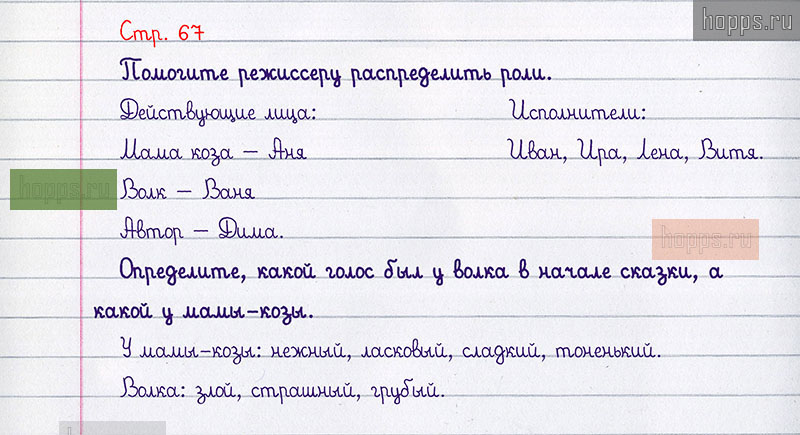 hopps.ru
Стр. 67
Помогите режиссеру распределить роли.
Действующие лица: Исполнители:
Мама коза – Аня Иван, Ира, Лена, Витя.
hopps.ru
Волк – Ваня
Автор – Дима.
hopps.ru
Определите, какой голос был у волка в начале сказки, а
какой у мамы-козы.
У мамы-козы: нежный, ласковый, сладкий, тоненький.
Волка: злой, страшный, грубый.
hopps.ru